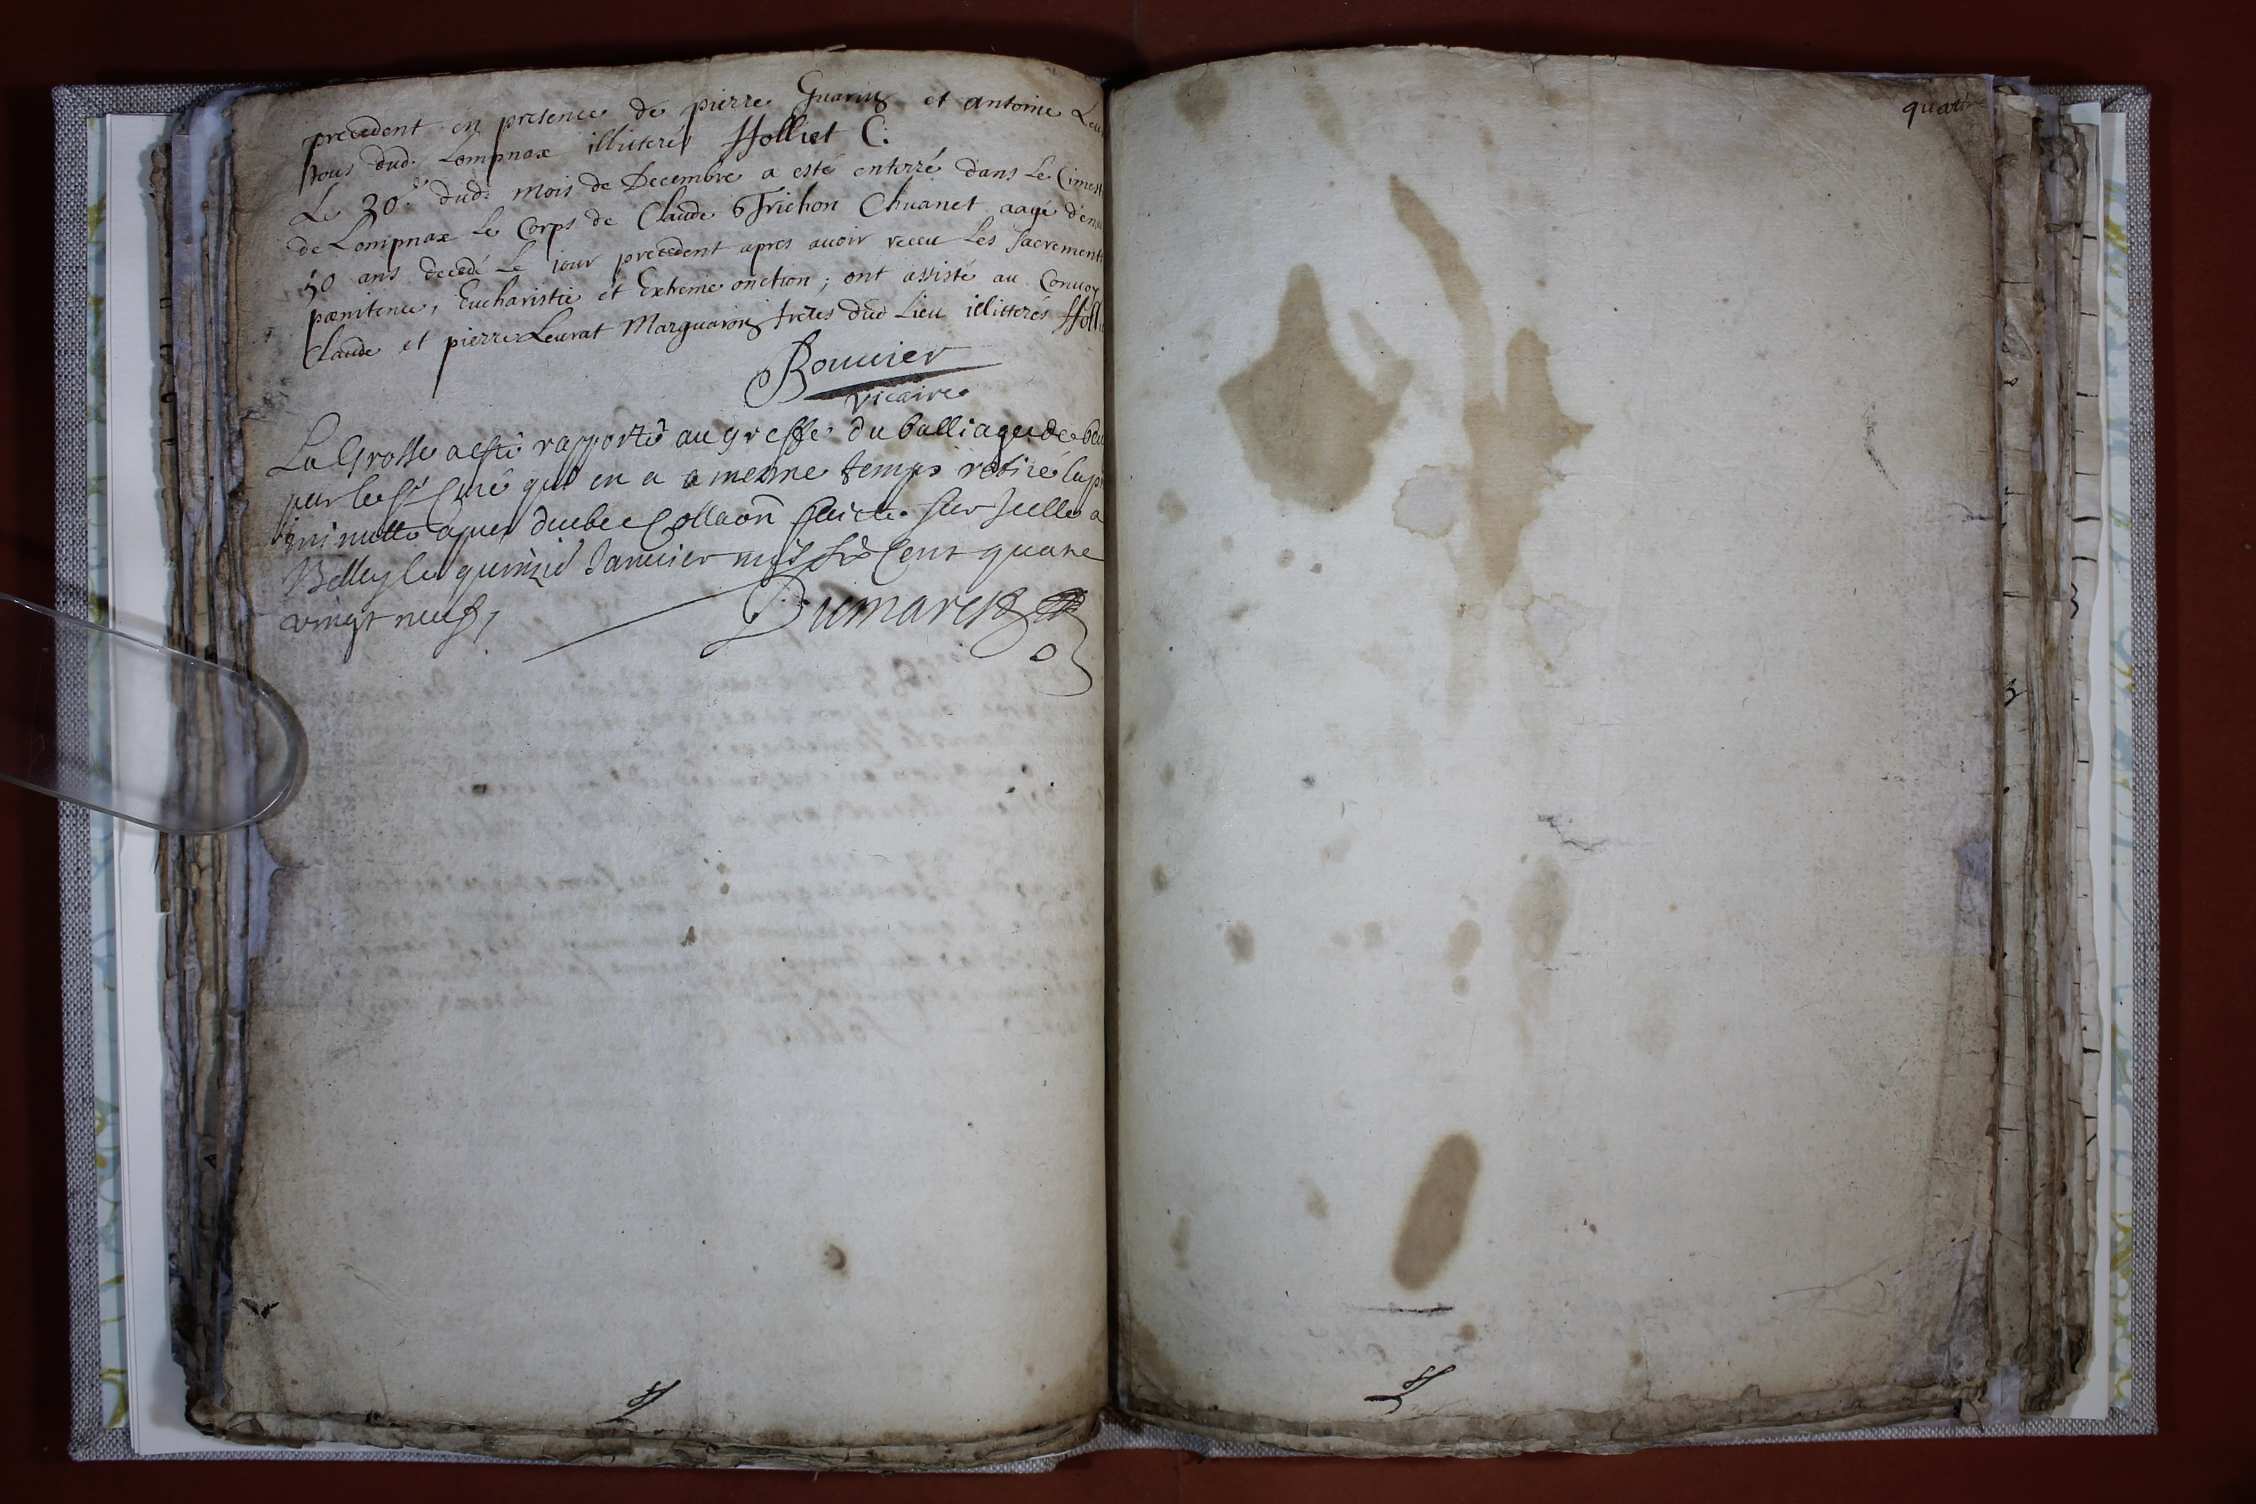 precedent en presence de pierre Guarin et antoine Leu
tous dud. Lompnax illiterés Holliet C.
Le 30e dud. mois de Decembre a esté enterré dans Le Cimest
de Lompnax Le Corps de Claude Trichon Chuanet aagé d'en
50 ans decedé Le iour precedent apres auoir receu Les sacrement
pœnitence, Eucharistie et Extreme onction; ont assisté au Conuoy
Claude et pierre Leurat Marguaron freres dud Lieu illitterés Holl
Bouuier
vicaire
La Grosse a esté rapportée au greffe du balliage de
par le Sr Curé qui en a a mesme temps retiré la
minutte apres deube Collaon faicte sur Icelle a
Belley le quinzie Januier mil six Cent quatre
vingt neuf
Dumarest
quatre